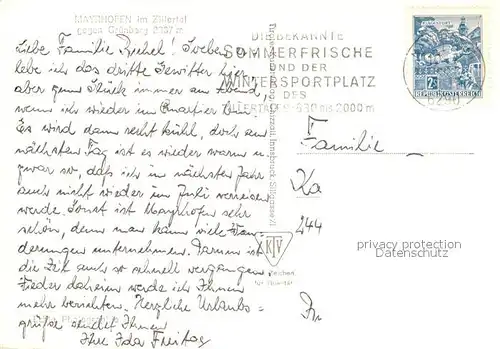 MAYRHOFEN im Zillertal
gegen Grünberg 2867 m
Liebe Familie Bechel! Soeben er=
lebe ich das dritte Gewitter hier,
aber zum Glück immer am Abend,
wenn ich wieder im Quartier bin.
Es wird dann recht kühl, doch am
nächsten Tag ist es wieder warm u.
zwar so, daß ich im nächsten Jahr
auch nicht wieder im Juli verreisen
werde. Sonst ist Mayrhofen sehr
schön, denn man kann viele Wan=
derungen unternehmen. Darum ist
die Zeit auch so schnell vergangen.
Wieder daheim werde ich Ihnen
mehr berichten. Herzliche Urlaubs=
grüße sendet Ihnen
Ihre Ida Freitag
DIE BEKANNTE
SOMMERFRISCHE
UND DER
WINTERSPORTPLATZ
DES
ZILLERTALES-630 BIS 2000 m
6290
REPUBLIK ÖSTERREICH
Innsbruck,
KTV
Zeichen
für Qualität
Familie
Ka
244
privacy protection
DATENSCHUTZ